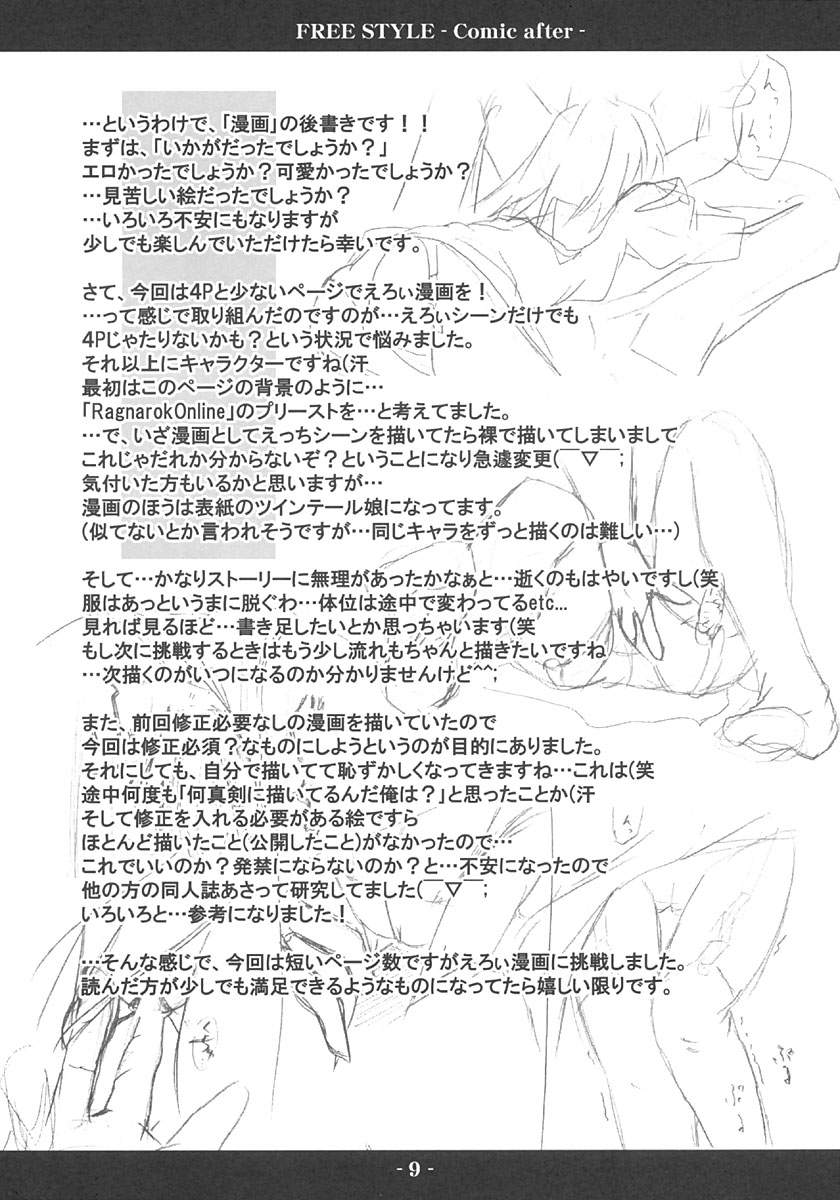 FREE STYLE - Comic after -
…というわけで、「漫画」の後書きです！！
まずは、「いかがだったでしょうか？」
エロかったでしょうか？可愛かったでしょうか？
…見苦しい絵だったでしょうか？
…いろいろ不安にもなりますが
少しでも楽しんでいただけたら幸いです。
さて、今回は4Pと少ないページでえろぃ漫画を！
…って感じで取り組んだのですのが…えろぃシーンだけでも
4Pじゃたりないかも？という状況で悩みました。
それ以上にキャラクターですね(汗
最初はこのページの背景のように…
「RagnarokOnline」のプリーストを…と考えてました。
…で、いざ漫画としてえっちシーンを描いてたら裸で描いてしまいまして
これじゃだれか分からないぞ？ということになり急遽変更(￣▽￣;
気付いた方もいるかと思いますが…
漫画のほうは表紙のツインテール娘になってます。
(似てないとか言われそうですが…同じキャラをずっと描くのは難しい…)
そして…かなりストーリーに無理があったかなぁと…逝くのもはやいですし(笑
服はあっというまに脱ぐわ…体位は途中で変わってるetc...
見れば見るほど…書き足したいとか思っちゃいます(笑
もし次に挑戦するときはもう少し流れもちゃんと描きたいですね
…次描くのがいつになるのか分かりませんけど^^;
また、前回修正必要なしの漫画を描いていたので
今回は修正必須？なものにしようというのが目的にありました。
それにしても、自分で描いてて恥ずかしくなってきますね…これは(笑
途中何度も「何真剣に描いてるんだ俺は？」と思ったことか(汗
そして修正を入れる必要がある絵ですら
ほとんど描いたこと(公開したこと)がなかったので…
これでいいのか？発禁にならないのか？と…不安になったので
他の方の同人誌あさって研究してました(￣▽￣;
いろいろと…参考になりました！
…そんな感じで、今回は短いページ数ですがえろぃ漫画に挑戦しました。
読んだ方が少しでも満足できるようなものになってたら嬉しい限りです。
- 9 -